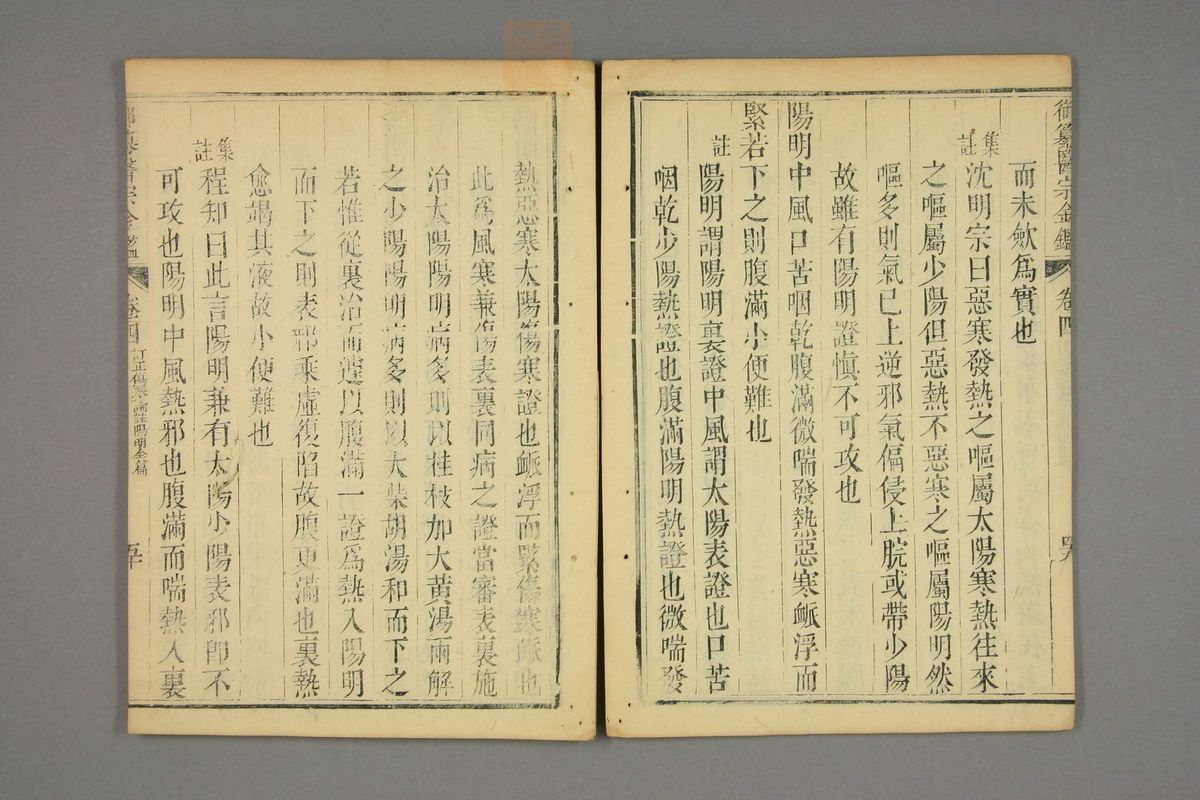 御纂醫宗金鑑 卷四 四九
而未斂爲實也
集註 沈明宗曰惡寒發熱之嘔屬太陽寒熱往來
之嘔屬少陽但惡熱不惡寒之嘔屬陽明然
嘔多則氣已上逆邪氣偏侵上脘或帶少陽
故雖有陽明證愼不可攻也
陽明中風口苦咽乾腹滿微喘發熱惡寒脈浮而
緊若下之則腹滿小便難也
註 陽明謂陽明裏證中風謂太陽表證也口苦
咽乾少陽熱證也腹滿陽明熱證也微喘發
熱惡寒太陽傷寒證也脈浮而緊傷寒脈也
此爲風寒兼傷表裏同病之證當審表裏施
治太陽陽明病多則以桂枝加大黃湯兩解
之少陽陽明病多則以大柴胡湯和而下之
若惟從裏治而遽以腹滿一證爲熱入陽明
而下之則表邪乘虛復陷故腹更滿也裏熱
愈竭其液故小便難也
集註 程知曰此言陽明兼有太陽少陽表邪卽不
可攻也陽明中風熱邪也腹滿而喘熱入裏
御纂醫宗金鑑 卷四 訂正傷寒論註陽明全篇 五十